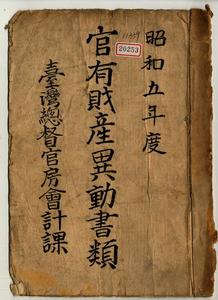 昭和五年度
官有財産異動書類
臺灣總督官房會計課
20253